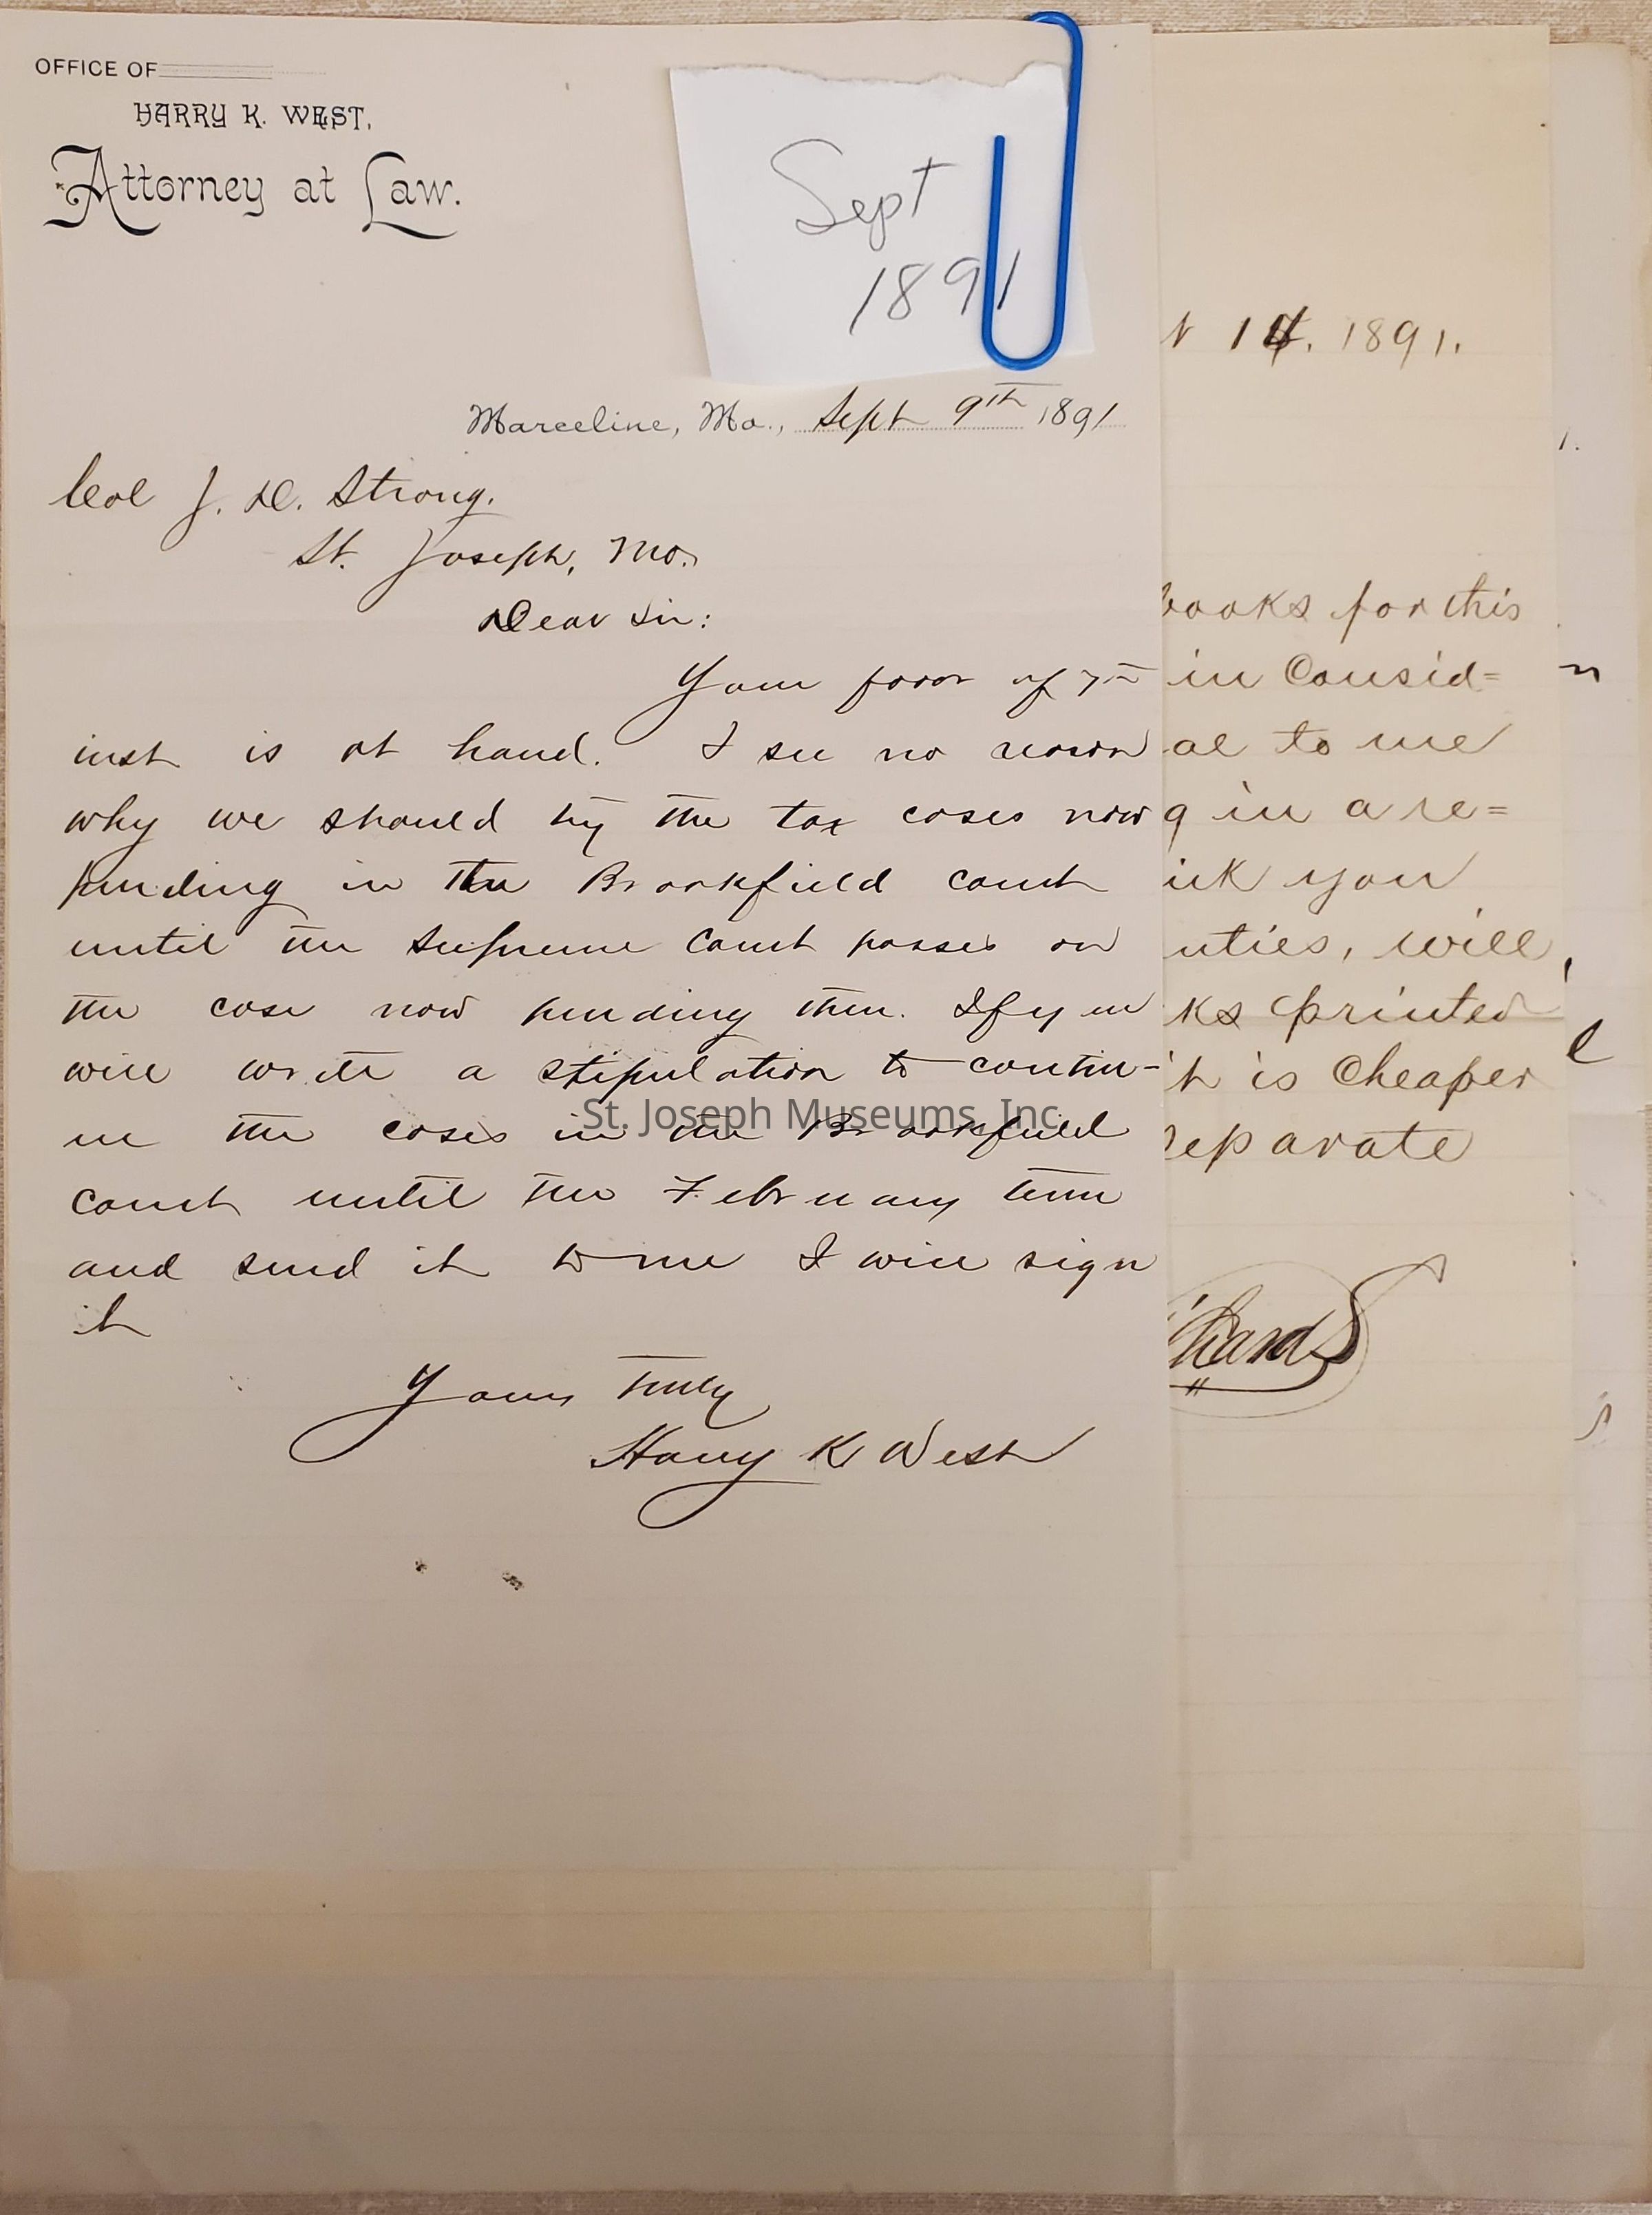 OFFICE OF
HARRY K. WEST,
Attorney at Law.
Sept
1891
Marceline, Mo., Sept 9th 1891
Col J. D. Strong.
St. Joseph, Mo.
Dear Sir:
Your favor of 7th
inst is at hand. I see no reason
why we should try the tax cases now
pending in the Brookfield court
until the Supreme Court passes on
the case now pending there. If you
will write a stipulation to contin-
ue the cases in the Brookfield
court until the February term
and send it to me I will sign
it
Yours Truly
Harry K West
St. Joseph Museums, Inc.
1891.
books for this
in Consid=
al to me
g in a re=
ink you
nties, will
ks printed
t is Cheaper
separate